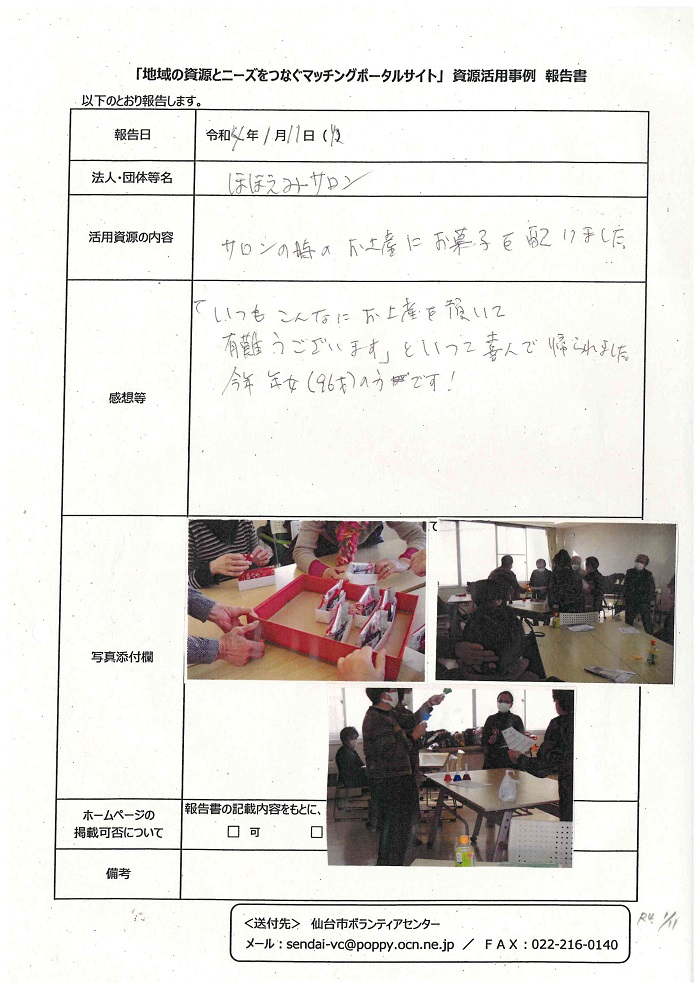 「地域の資源とニーズをつなぐマッチングポータルサイト」 資源活用事例 報告書
以下のとおり報告します。
報告日
令和4年1月11日(火)
法人・団体等名
ほほえみサロン
活用資源の内容
サロンの時のお土産にお菓子を配りました
感想等
「いつもこんなにお土産を頂いて
有難うございます」といって喜んで帰られました
今年 年女(96才)の方です!
写真添付欄
て
ホームページの
掲載可否について
報告書の記載内容をもとに、
□ 可 □
備考
<送付先> 仙台市ボランティアセンター
メール:sendai-vc@poppy.ocn.ne.jp / FAX:022-216-0140
R4. 1/11